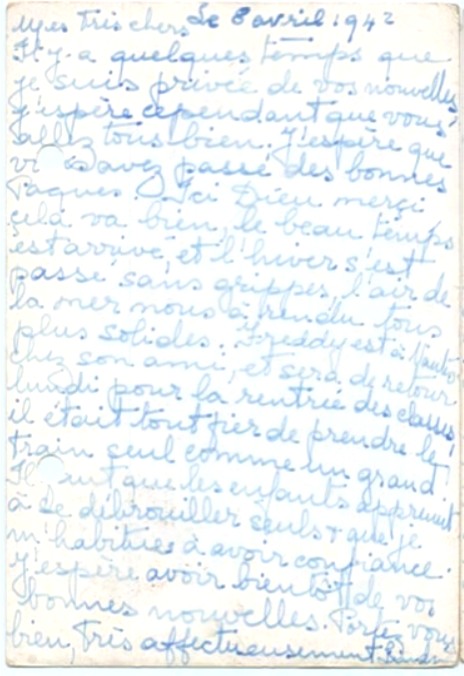 Mes très chers Le 8 avril 1942
Il y a quelques temps que
je suis privée de vos nouvelles
j'espère cependant que vous
allez tous bien. J'espère que
avez passé des bonnes
Paques. Ici Dieu merçi
cela va bien, le beau temps
est arrivé, et l'hiver s'est
passé sans grippes, l'air de
la mer nous à rendu tous
plus solides. Freddy est à
chez son ami, et sera de retour
lundi pour la rentrée des classes
il était tout fier de prendre le
train seul comme un grand
Il que les enfants apprennent
à se débrouiller seuls et que je
m'habitue à avoir confiance.
J'espère avoir bientôt de vos
bonnes nouvelles. Portez vous
bien, Très affectueusement